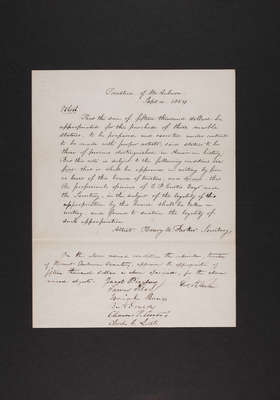 Trustees of Mt Auburn
Sept 1854
Voted,
That the sum of fifteen thousand dollars be
appropriated for the purchase of three marble
statues, to be prepared and executed under contract
to be made with proper artists, said statues to be
those of persons distinguished in American history
But this vote is subject to the following conditions
first that it shall be approved in writing by five
or more of the board of trustees, and second that
the professional opinion of C P Curtis Esq and
the Secretary, on the subject of the legality of this
appropriation by the board shall be taken in
writing, and found to sustain the legality of
such appropriation
Attest. Henry M. Parker Secretary
On the above named conditions the subscribers trustees
of Mount Auburn Cemetery, approve the appropriation of
fifteen thousand dollars as above specified, for the above
named objects.
Jacob Bigelow
James
Charles P. Curtis